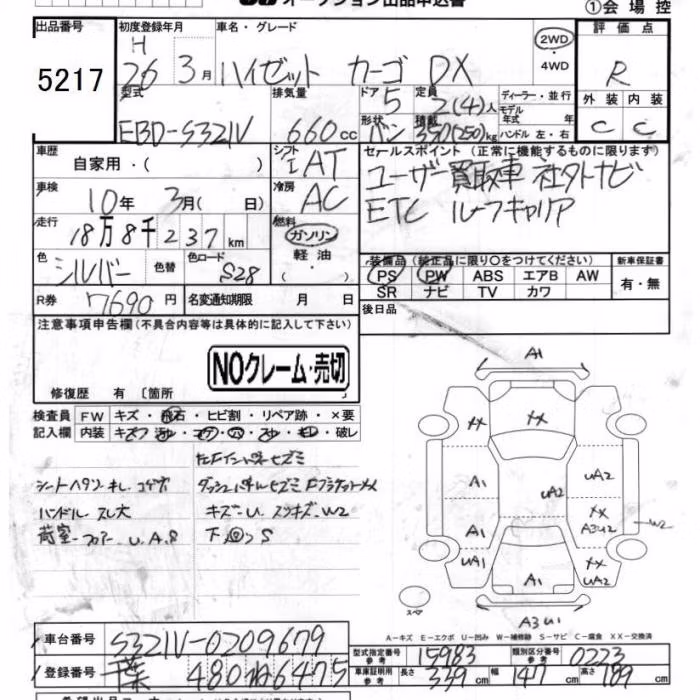 オークション出品申込書
①会場控
出品番号 初度登録年月 車名・グレード 評価点
5217 H 26 3月 ハイゼット カーゴ DX 2WD 4WD R
型式 排気量 ドア 5 定員 2(4)人 ディーラー・並行 外装 内装
モデル年式 年
EBD-S321V 660cc 形状 バン 積載 350(250)kg ハンドル 左・右 C C
車歴 自家用・( ) シフト AT セールスポイント (正常に機能するものに限ります)
車検 10年 3月( 日) 冷房 AC ユーザー買取車 社外ナビ
ETC ルーフキャリア
走行 18万8千237km 燃料 ガソリン 軽油
色 シルバー 色替 色コード S28 ・( )
装備品 (純正品に限り○をつけてください) 新車保証書
PS PW ABS エアB AW 有・無
SR ナビ TV カワ
R券 7690円 名変通知期限 月 日 後日品
注意事項申告欄(不具合内容等は具体的に記入して下さい)
NOクレーム・売切
修復歴 有 〔箇所 〕
検査員 FW キズ・飛石・ヒビ割・リペア跡・×要
記入欄 内装 キズ・汚れ・コゲ・穴・スレ・キレ・破レ
シートヘタリ キレ コゲ穴
ハンドル スレ大
荷室フロアー U.A.S
下回りS
A1
XX XX
A1 UA2 UA2
XX
A3U2 W2
A1
UA1 A1 XX
UA2
スペア
A3U1
A-キズ E-エクボ U-凹み W-補修跡 S-サビ C-腐食 XX-交換済
車台番号 S321V-0209679
型式指定番号 参考 15983 類別区分番号 参考 0223
登録番号 千葉 480 ね 6475
車庫証明用 参考 長さ 339cm 幅 147cm 高さ 189cm